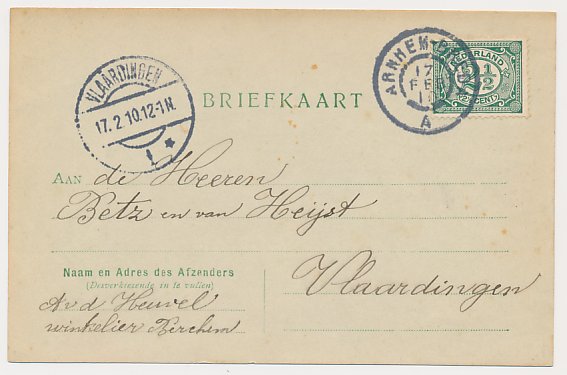 VLAARDINGEN
17.2.10.12-1N.
1 *
ARNHEM-
17
FE
A
NEDERLAND
2 1/2
CENT
BRIEFKAART
AAN de Heeren
Betz en van Heijst
Vlaardingen
Naam en Adres des Afzenders
(Desverkiezende in te vullen)
A v d Heuvel
winkelier Berchem